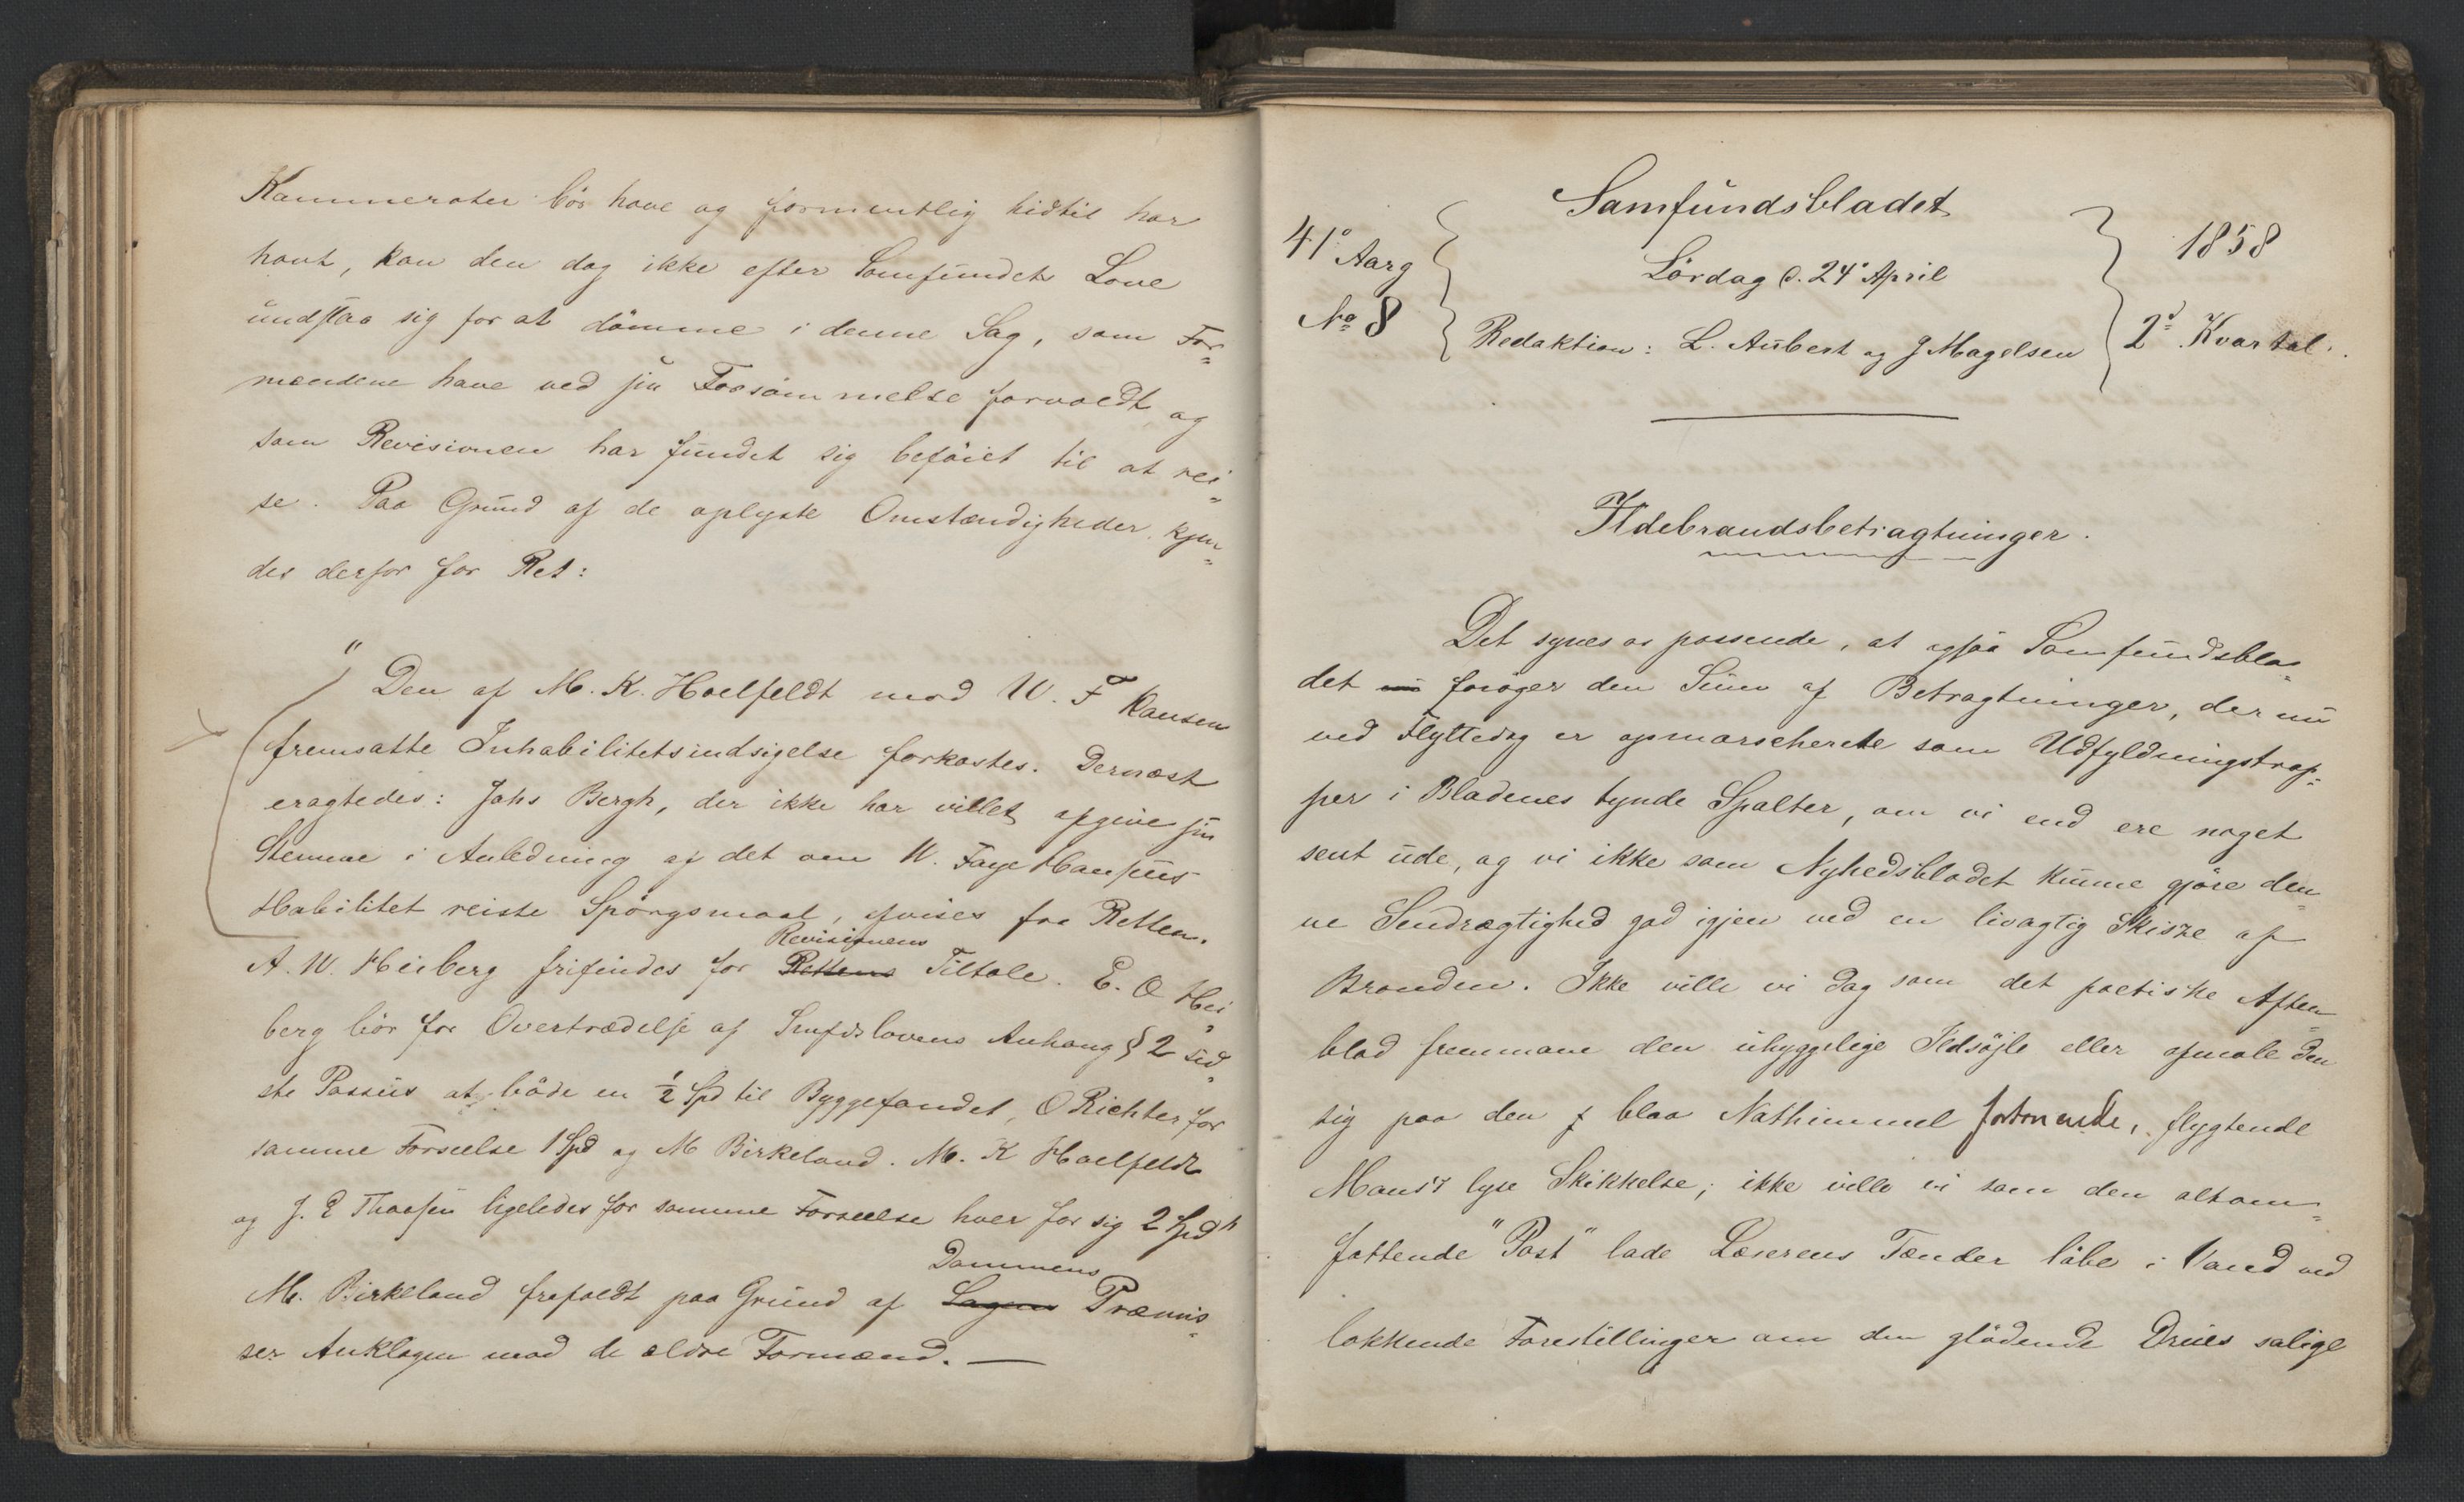 Kammerater bör have og formentlig hidtil har
havt, kan den dog ikke efter Samfundets Love
undslaa sig for at dömme i denne Sag, som For=
mændene have ved sin Forsömmelse forvoldt og
som Revisionen har fundet sig beföiet til at rei=
se. Paa Grund af de oplyste Omstændigheder kjen=
des derfor for Ret:
" Den af M. K. Hoelfeldt mod W. F Hansen
fremsatte Inhabilitetsindsigelse forkastes. Dernæst
eragtedes: Johs Bergh, der ikke har villet afgive sin
Stemme i Anledning af det om W. Faye Hansens
Habilitet reiste Spörgsmaal, afvises fra Retten.
Revisionens
A. W. Heiberg frifindes for Rettens Tiltale. E. O Hei=
berg bör for Overtrædelse af Smfdslovens Anhang § 2 sid=
ste Passus at böde en ½ Spd til Byggefondet, O Richter for
samme Forseelse 1 Spd og M Birkeland. M. K Hoelfeldt
og J. E Thaasen ligeledes for samme Forseelse hver for sig 2 Spd "
Dommens
M. Birkeland frafaldt paa Grund af Sagens Præmis=
ser Anklagen mod de ældre Formænd. —
Samfundsbladet
41° Aarg
Lördag d. 24° April
1858
No 8
Redaktion: L. Aubert og J Magelsen
2d Kvartal.
Ildebrandsbetragtninger.
Det synes os passende, at ogsaa Samfundsbla=
det foröger den Sum af Betragtninger, der nu
ved Flyttedag er opmarscherete som Udfyldningstrop=
per i Bladenes tynde Spalter, om vi end ere noget
sent ude, og vi ikke som Nyhedsbladet kunne gjöre den
ne Sendrægtighed god igjen ved en livagtig Skisze af
Branden. Ikke ville vi dog som det poetiske Aften=
blad fremmane den uhyggelige Ildsöjle eller afmale den
sig paa den blaa Nathimmel fortonende, flygtende
Mands lyse Skikkelse; ikke ville vi som den altom=
fattende "Post" lade Læserens Tænder löbe i Vand ved
lokkende Forestillinger om den glödende Drues salige